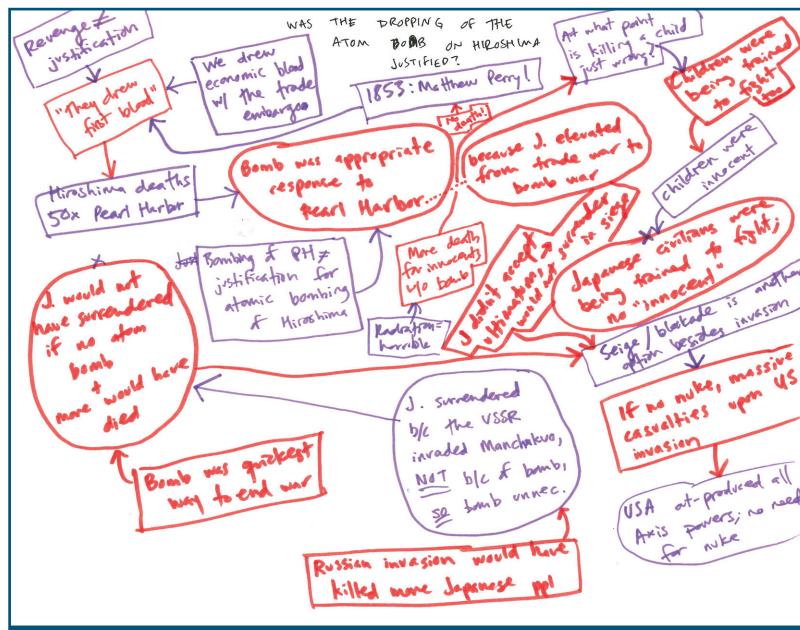 WAS THE DROPPING OF THE
ATOM BOMB ON HIROSHIMA
JUSTIFIED?
Revenge ≠
justification
"They drew
first blood"
We drew
economic blood
w/ the trade
embargo
1853: Matthew Perry!
No
death!
At what point
is killing a child
just wrong?
Children were
being trained
to fight
too
Children were
innocent
Hiroshima deaths
50x Pearl Harbor
Bomb was appropriate
response to
Pearl Harbor...
because J. elevated
from trade war to
bomb war
Bombing of PH ≠
justification for
atomic bombing
of Hiroshima
More death
for innocents
w/o bomb
Radiation =
horrible
J didn't accept
ultimatum,
would not surrender
in siege
Japanese civilians were
being trained to fight;
no "innocent"
J. would not
have surrendered
if no atom
bomb
+
more would have
died
Seige/blockade is another
option besides invasion
If no nuke, massive
casualties upon US
invasion
USA out-produced all
Axis powers; no need
for nuke
J. surrendered
b/c the USSR
invaded Manchukuo,
NOT b/c of bomb,
so bomb unnec.
Bomb was quickest
way to end war
Russian invasion would have
killed more Japanese ppl